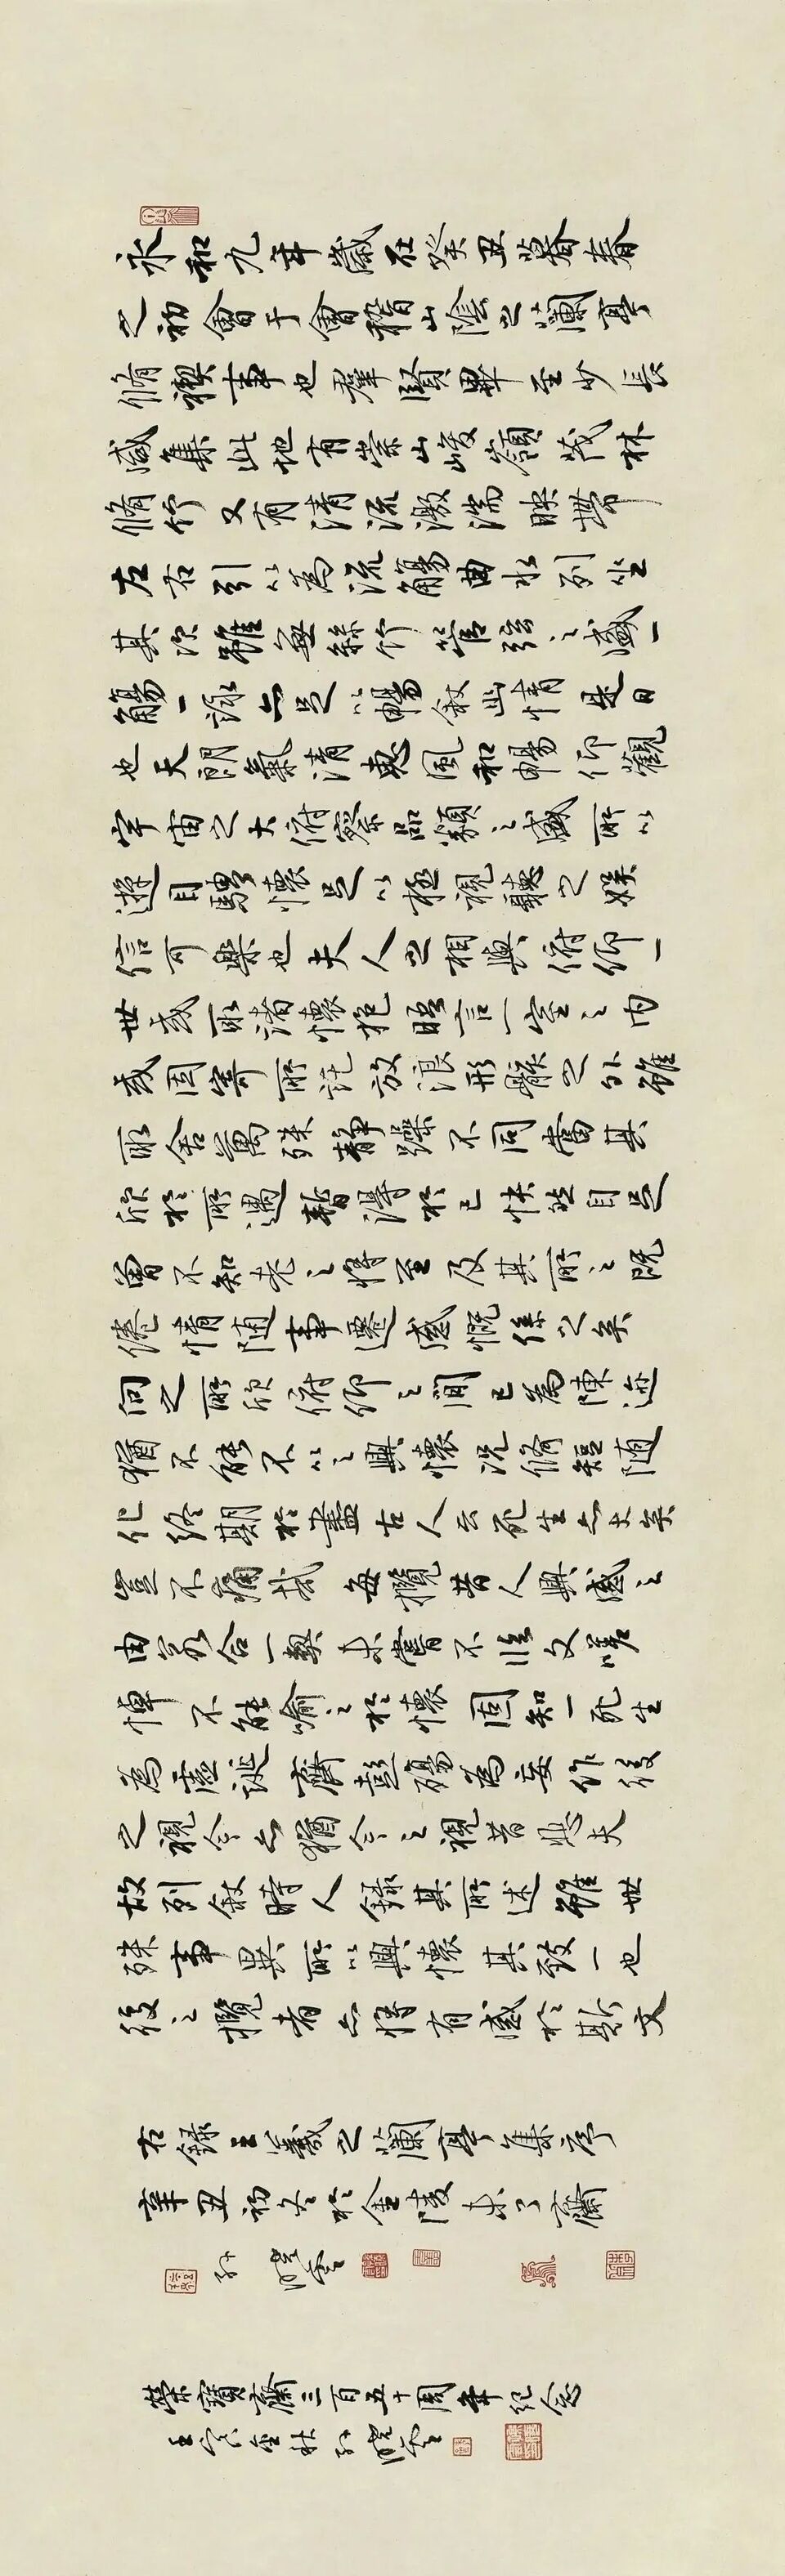 永和九年歲在癸丑暮春
之初會于會稽山陰之蘭亭
脩禊事也群賢畢至少長
咸集此地有崇山峻嶺茂林
脩竹又有清流激湍暎帶
左右引以為流觴曲水列坐
其次雖無絲竹管弦之盛一
觴一詠亦足以暢敘幽情是日
也天朗氣清惠風和暢仰觀
宇宙之大俯察品類之盛所以
遊目騁懷足以極視聽之娛
信可樂也夫人之相與俯仰一
世或取諸懷抱晤言一室之內
或因寄所託放浪形骸之外雖
取舍萬殊靜躁不同當其
欣於所遇暫得於己快然自足
曾不知老之將至及其所之既
倦情随事遷感慨係之矣
向之所欣俯仰之間已為陳迹
猶不能不以之興懷況脩短随
化終期於盡古人云死生亦大矣
豈不痛哉每攬昔人興感之
由若合一契未嘗不臨文嗟
悼不能喻之於懷固知一死生
為虛誕齊彭殤為妄作後
之視今亦猶今之視昔悲夫
故列敘時人錄其所述雖世
殊事異所以興懷其致一也
後之攬者亦將有感於斯文
右錄王羲之蘭亭集序
辛丑初冬於金陵未了齋
孫曉雲
榮寶齋三百五十周年紀念
壬寅金秋孫曉雲